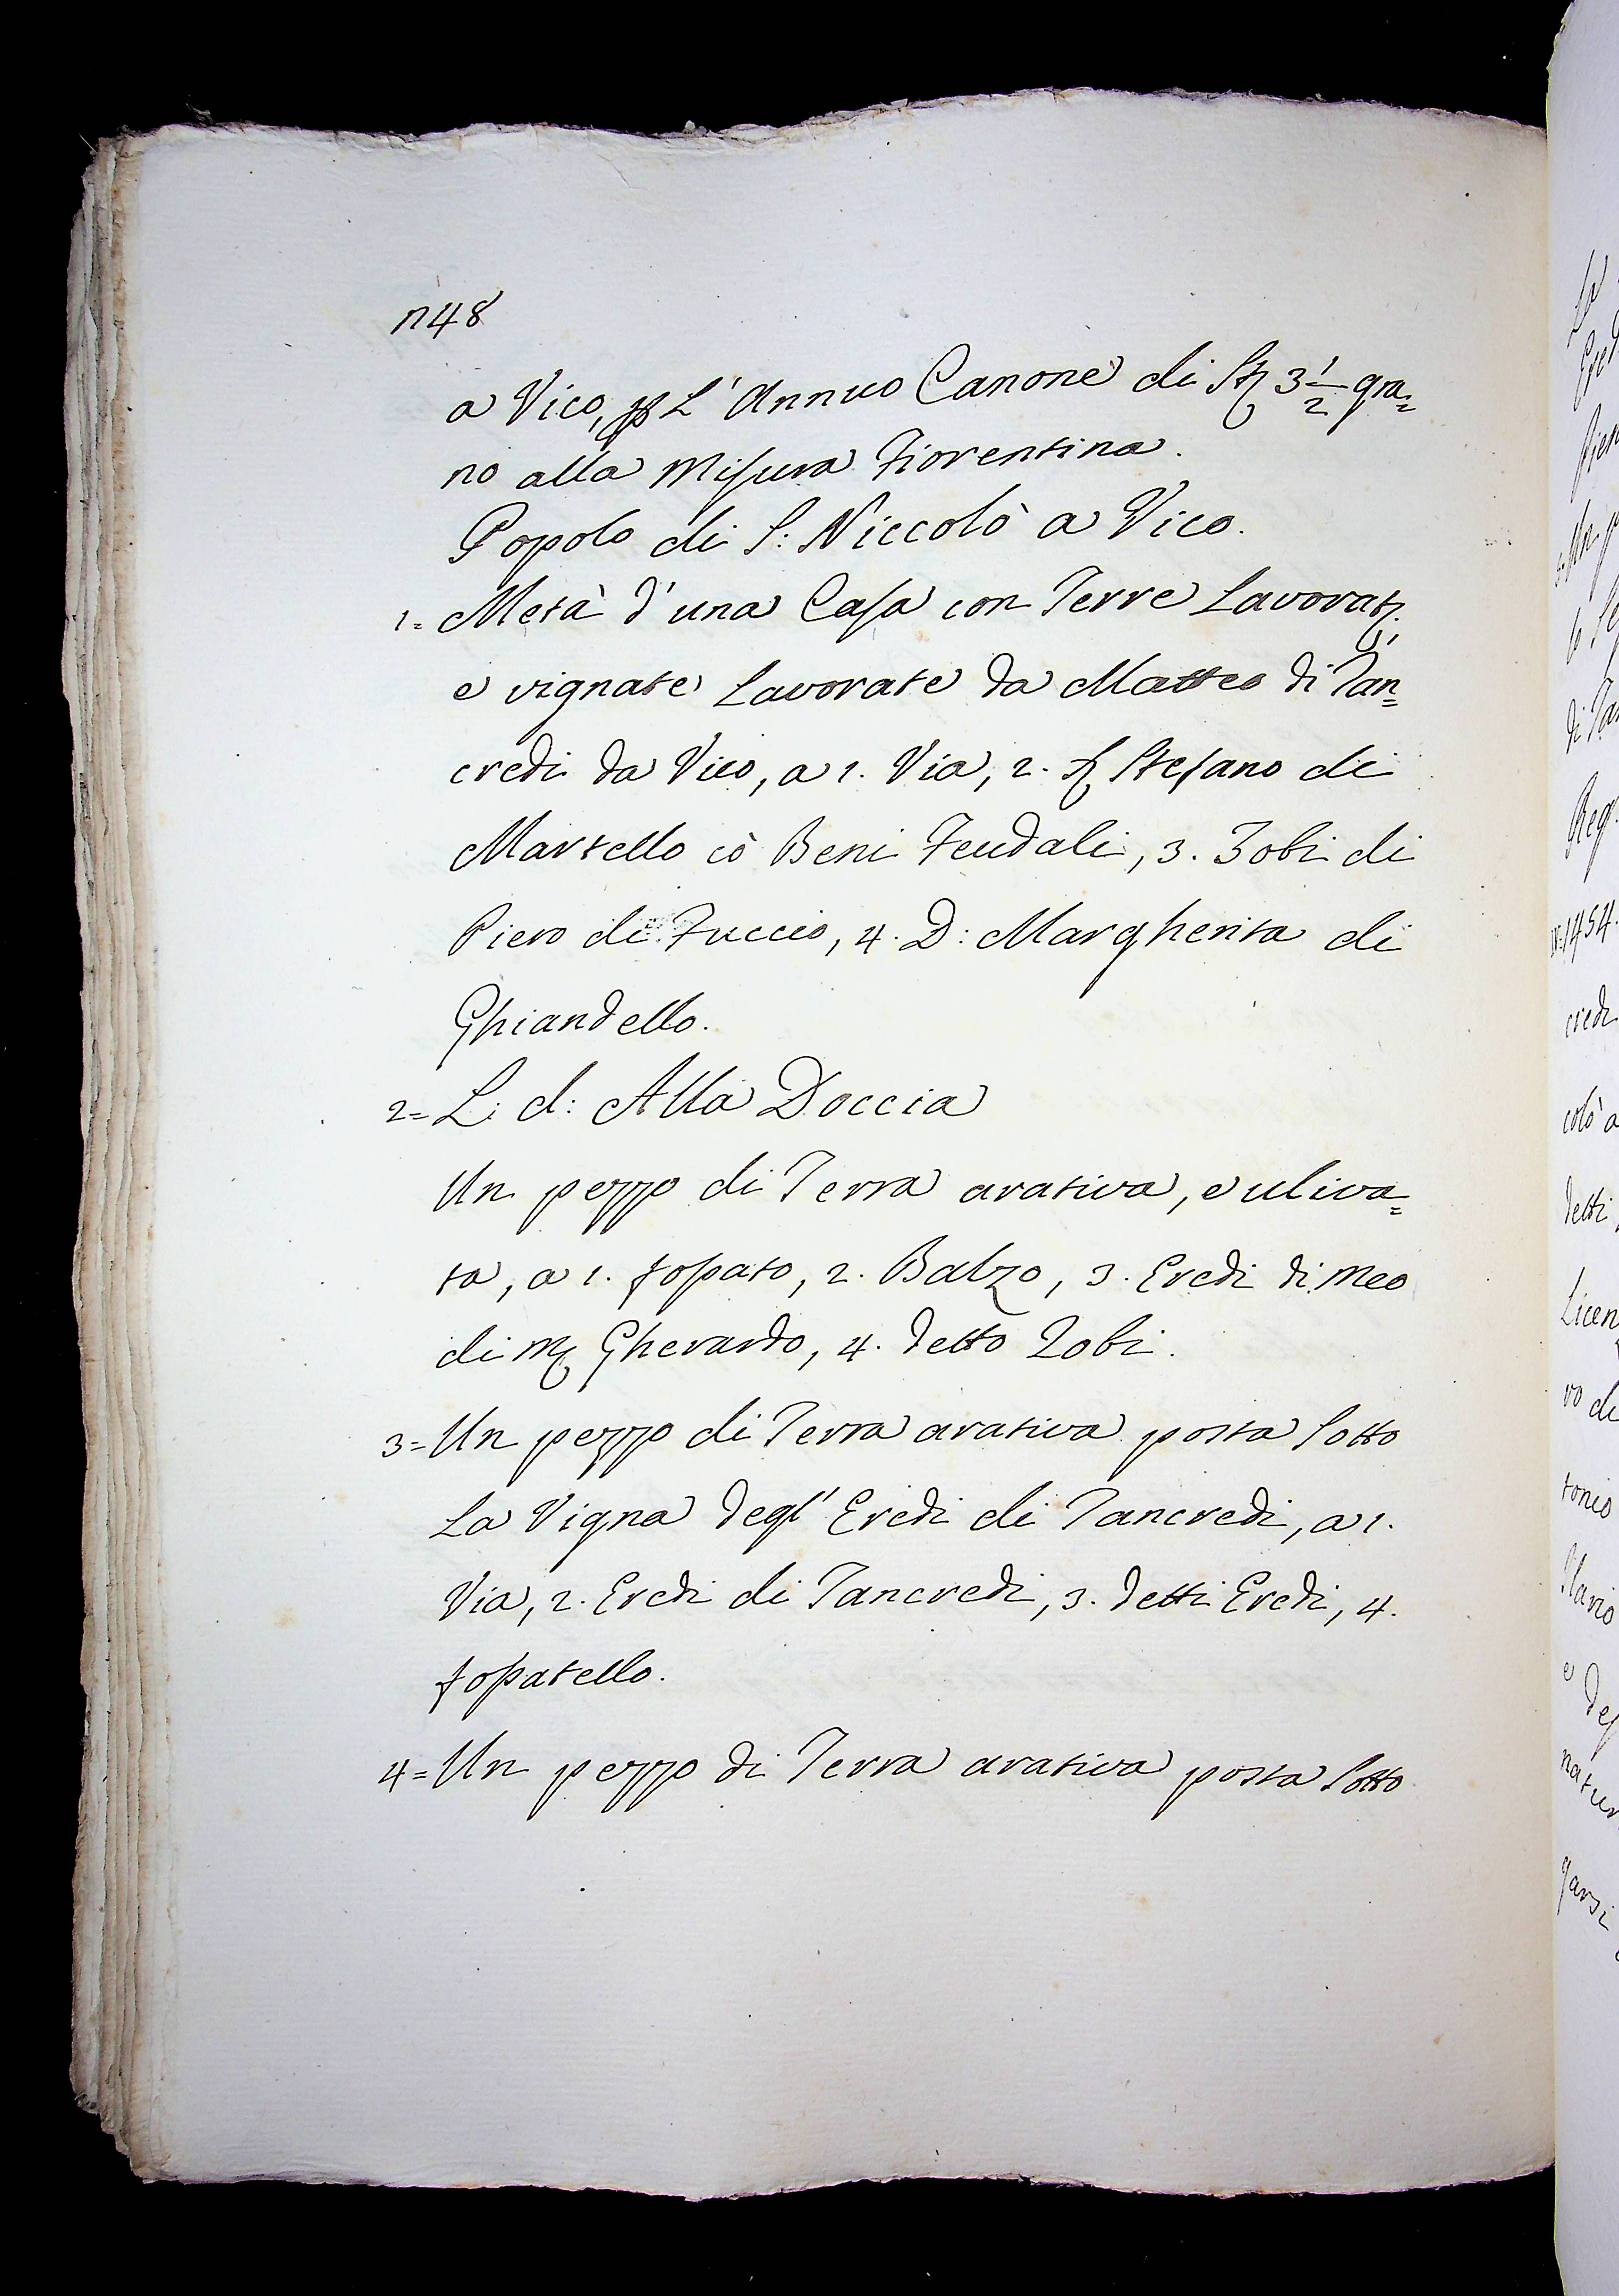 n48
a Vico, p L'Annuo Canone di St 3 1/2 gra=
no alla Misura Fiorentina.
Popolo di S: Niccolò a Vico.
1= Metà d'una Casa con Terre Lavorat.
e vignate Lavorate da Matteo di Tan=
credi da Vico, a 1. Via, 2. S Stefano di
Martello cò Beni Feudali, 3. Zobi di
Piero di Fuccio, 4. D: Margherita di
Ghiandello.
2= L: d: Alla Doccia
Un pezzo di Terra arativa, e uliva=
ta, a 1. fossato, 2. Balzo, 3. Eredi di Meo
di M Gherardo, 4. detto Zobi.
3= Un pezzo di Terra arativa posta Sotto
La Vigna degl' Eredi di Tancredi, a 1.
Via, 2. Eredi di Tancredi, 3. detti Eredi, 4.
fossatello.
4= Un pezzo di Terra arativa posta Sotto